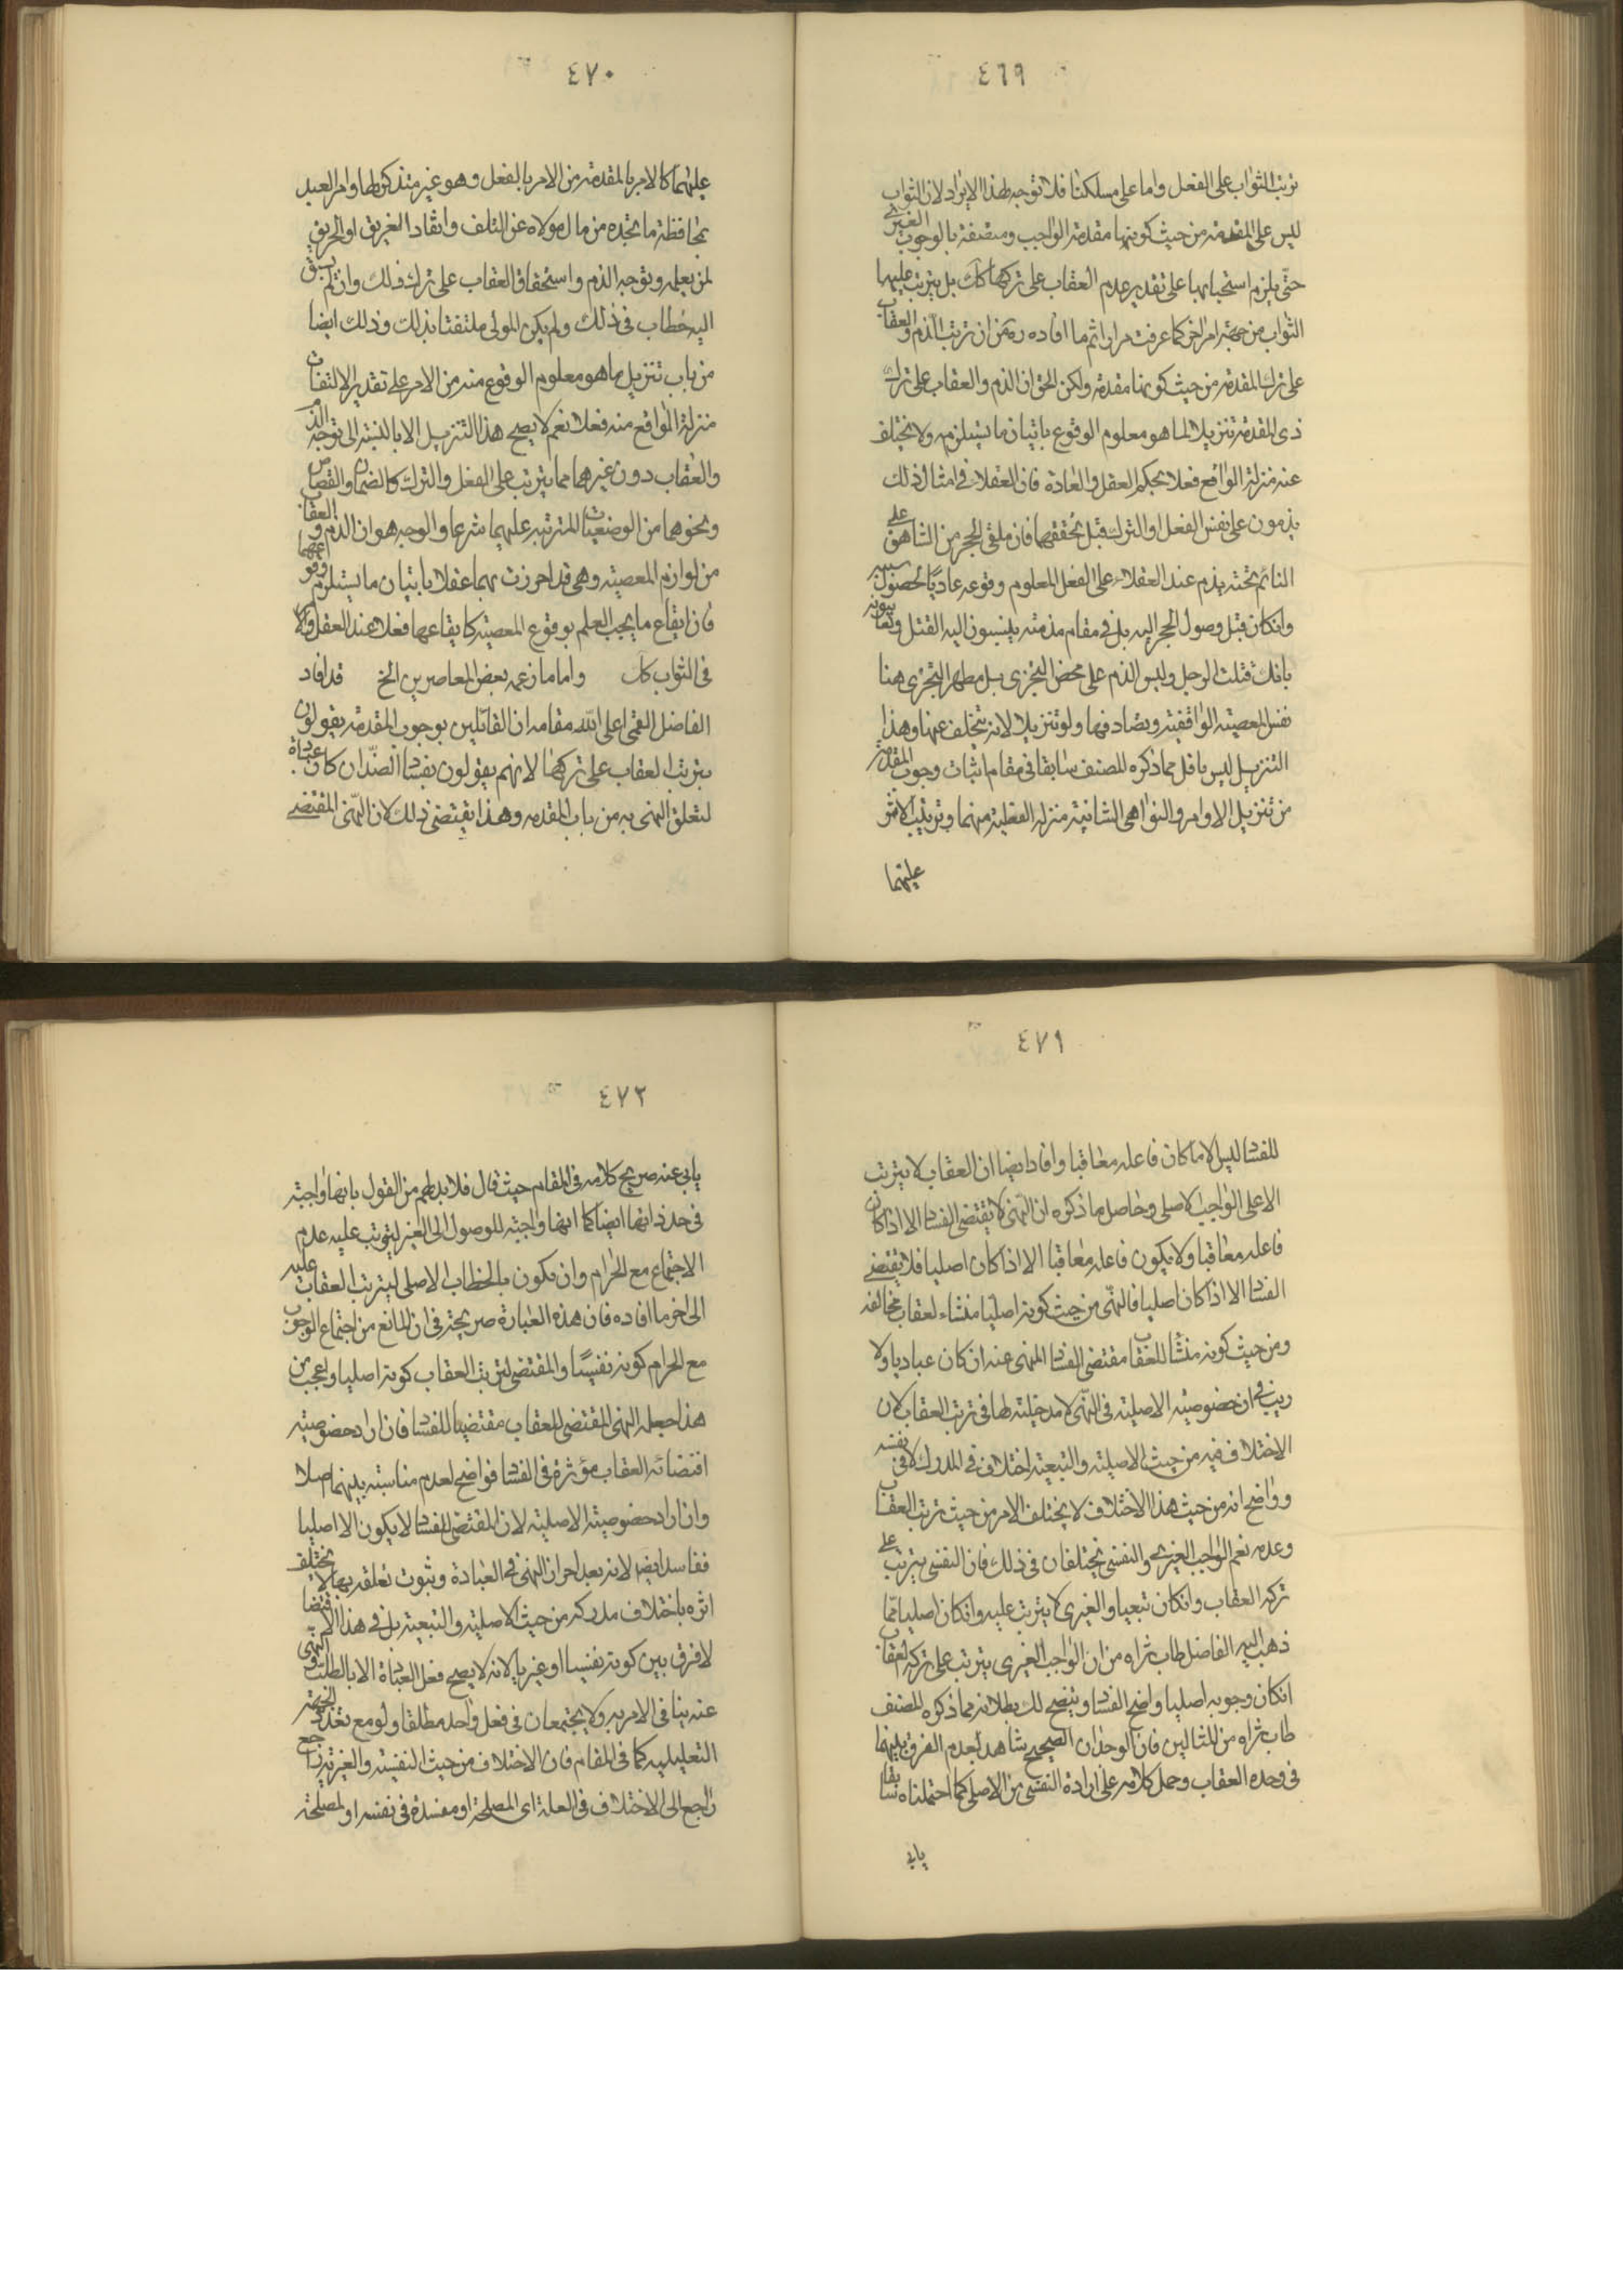 ٤٦٩
ترتب الثواب على الفعل واما على مسلكنا فلا توجه لهذا الايراد لان الثواب
ليس على المقدمة من حيث كونها مقدمة الواجب ومتصفة بالوجوب الغيرى
حتّى يلزم استحبابها على تقدير عدم العقاب على تركها كك بل يترتب عليها
الثواب من جهة امر اخر كما عرفت مرارا ثم ما افاده ره من ان ترتب الذم والعقاب
على ترك المقدمة من حيث كونها مقدمة ولكن الحق ان الذم والعقاب على ترك
ذى المقدمة تنزيلا لما هو معلوم الوقوع باتيان ما يستلزمه ولا يتخلف
عنه منزلة الواقع فعلا بحكم العقل والعادة فان العقلاء فى امثال ذلك
يذمون على نفس الفعل او الترك قبل تحققهما فان ملقى الحجر من الشاهق على
النائم تحته يذم عند العقلاء على الفعل المعلوم وقوعه عاديّا لحصول سببه
وانكان قبل وصول الحجر اليه بل فى مقام مذمته ينسبون اليه القتل
بانك قتلت الرجل وليس الذم على محض التجرى بل مظهر التجرى هنا
نفس المعصية الواقعية ويصادفها ولو تنزيلا لانه لا يتخلف عنها وهذا
التنزيل ليس باقل مما ذكره المصنف سابقا فى مقام اثبات وجوب المقدمة
من تنزيل الاوامر والنواهى الشانية منزلة الفعلية منهما وترتيب الاثر
عليهما
٤٧٠
عليهما كالامر بالمقدمة من الامر بالفعل وهو غير متذكر لها وامر العبد
بمحافظة ما يجده من مال مولاه عن التلف وانقاد الغريق او الحريق
لمن يعلمه ويتوجه الذم واستحقاق العقاب على ترك ذلك وان لم يسبق
اليه خطاب فى ذلك ولم يكن المولى ملتفتا بذلك وذلك ايضا
من باب تنزيل ما هو معلوم الوقوع منه من الامر على تقدير الالتفات
منزلة الواقع منه فعلا نعم لا يصح هذا التنزيل الا بالنسبة الى توجه الذم
والعقاب دون غيرهما مما يترتب على الفعل والترك كالضمان والقصاص
ونحوهما من الوضعيات المترتبه عليهما شرعا والوجه هو ان الذم والعقاب
من لوازم المعصية وهى قد احرزت بهما عقلا باتيان ما يستلزم وقوعهما
فان ايقاع ما يجب العلم بوقوع المعصية كايقاعها فعلا عند العقل والا
فى الثواب كك واما ما زعمه بعض المعاصرين الخ قد افاد
الفاضل القمى اعلى الله مقامه ان القائلين بوجوب المقدمة يقولون
بترتب العقاب على تركها لانهم يقولون بفساد الضدّ ان كان عبادة
لتعلق النهى به من باب المقدمه وهذا يقتضى ذلك لان النّهى المقتضى
٤٧١
للفساد ليس الا ما كان فاعله معاقبا وافاد ايضا ان العقاب لا يترتب
الا على الواجب الاصلى وحاصل ما ذكره ان النّهى لا يقتضى الفساد الا اذا كان
فاعله معاقبا ولا يكون فاعله معاقبا الا اذا كان اصليا فلا يقتضى
الفساد الا اذا كان اصليا فالنّهى من حيث كونه اصليّا منشاء لعقاب مخالفه
ومن حيث كونه منشأ للعقاب مقتضى لفساد المنهى عنه ان كان عباديا ولا
ريب فى ان خصوصية الاصلية فى النّهى لا مدخلية لها فى ترتب العقاب لان
الاختلاف فيه من حيث الاصلية والتبعية اختلاف فى المدرك لا فى نفسه
وواضح انه من حيث هذا الاختلاف لا يختلف الامر من حيث ترتب العقاب
وعدمه نعم الواجب الغيرى والنفسى يختلفان فى ذلك فان النفسى يترتب على
تركه العقاب وانكان تبعيا والغيرى لا يترتب عليه وانكان اصليا فما
ذهب اليه الفاضل طاب ثراه من ان الواجب الغيرى يترتب على تركه العقاب
انكان وجوبه اصليا واضح الفساد ويتضح لك بطلانه مما ذكره المصنف
طاب ثراه من المثالين فان الوجدان الصحيح شاهد بعدم الفرق بينهما
فى وحده العقاب وحمل كلامه على ارادة النفسى من الاصلى كما احتملناه سابقا
يابى
٤٧٢
يابى عنه صريح كلامه فى المقام حيث قال فلا بد لهم من القول بانها واجبة
فى حد ذاتها ايضا كما انها واجبة للوصول الى الغير ليترتب عليه عدم
الاجتماع مع الحرام وان يكون بالخطاب الاصلى ليترتب العقاب عليه
الى اخر ما افاده فان هذه العبارة صريحة فى ان المانع من اجتماع الوجوب
مع الحرام كونه نفسيّا والمقتضى لترتب العقاب كونه اصليا واعجب من
هذا جعله النهى المقتضى للعقاب مقتضيا للفساد فان اراد خصوصية
اقتضائه العقاب مؤثرة فى الفساد فواضح لعدم مناسبة بينهما اصلا
وان اراد خصوصية الاصلية لان المقتضى للفساد لا يكون الا اصليا
ففاسد ايضا لانه بعد احراز النهى فى العبادة وثبوت تعلقه بها لا يختلف
اثره باختلاف مدركه من حيث الاصلية والتبعية بل فى هذا الاقتضاء
لا فرق بين كونه نفسيا او غيريا لانه لا يصح فعل العبادة الا بالطلب والنهى
عنه ينافى الامر به ولا يجتمعان فى فعل واحد مطلقا ولو مع تعدد الجهة
التعليلية كما فى المقام فان الاختلاف من حيث النفسية والغيرية
راجع الى الاختلاف فى العلة اى المصلحة او مفسدة فى نفسه او لمصلحة